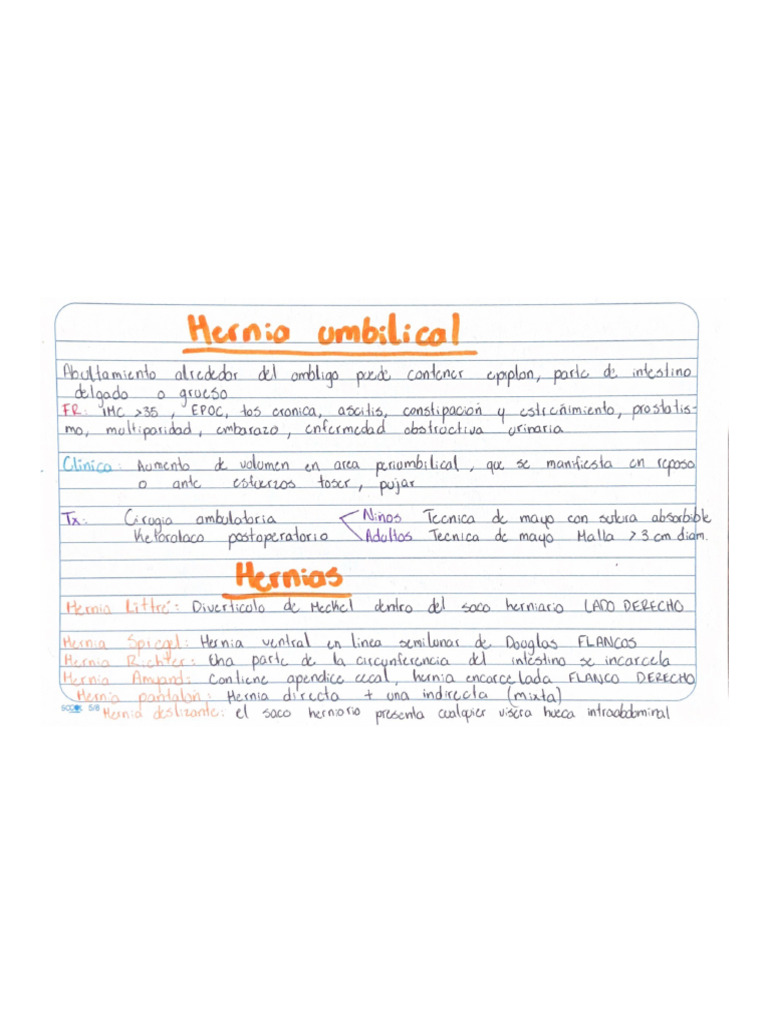 Hernia umbilical
Abultamiento alrededor del ombligo puede contener epiplon, parte de intestino
delgado o grueso
FR: IMC >35, EPOC, tos cronica, ascitis, constipación y estreñimiento, prostatis-
mo, multiparidad, embarazo, enfermedad obstructiva urinaria
Clinica: Aumento de volumen en area periumbilical, que se manifiesta en reposo
o ante esfuerzos toser, pujar
Tx: Cirugia ambulatoria Niños Tecnica de mayo con sutura absorbible
Ketorolaco postoperatorio Adultos Tecnica de mayo Malla >3 cm diam.
Hernias
Hernia Littré: Diverticolo de Meckel dentro del saco herniario LADO DERECHO
Hernia Spiegel: Hernia ventral en linea semilunar de Douglas FLANCOS
Hernia Richter: Una parte de la circunferencia del intestino se incarcela
Hernia Amyand: Contiene apendice cecal, hernia encarcelada FLANCO DERECHO
Hernia pantalon: Hernia directa + una indirecta (mixta)
5/8 Hernia deslizante: el saco herniario presenta cualquier visera hueca intraabdominal